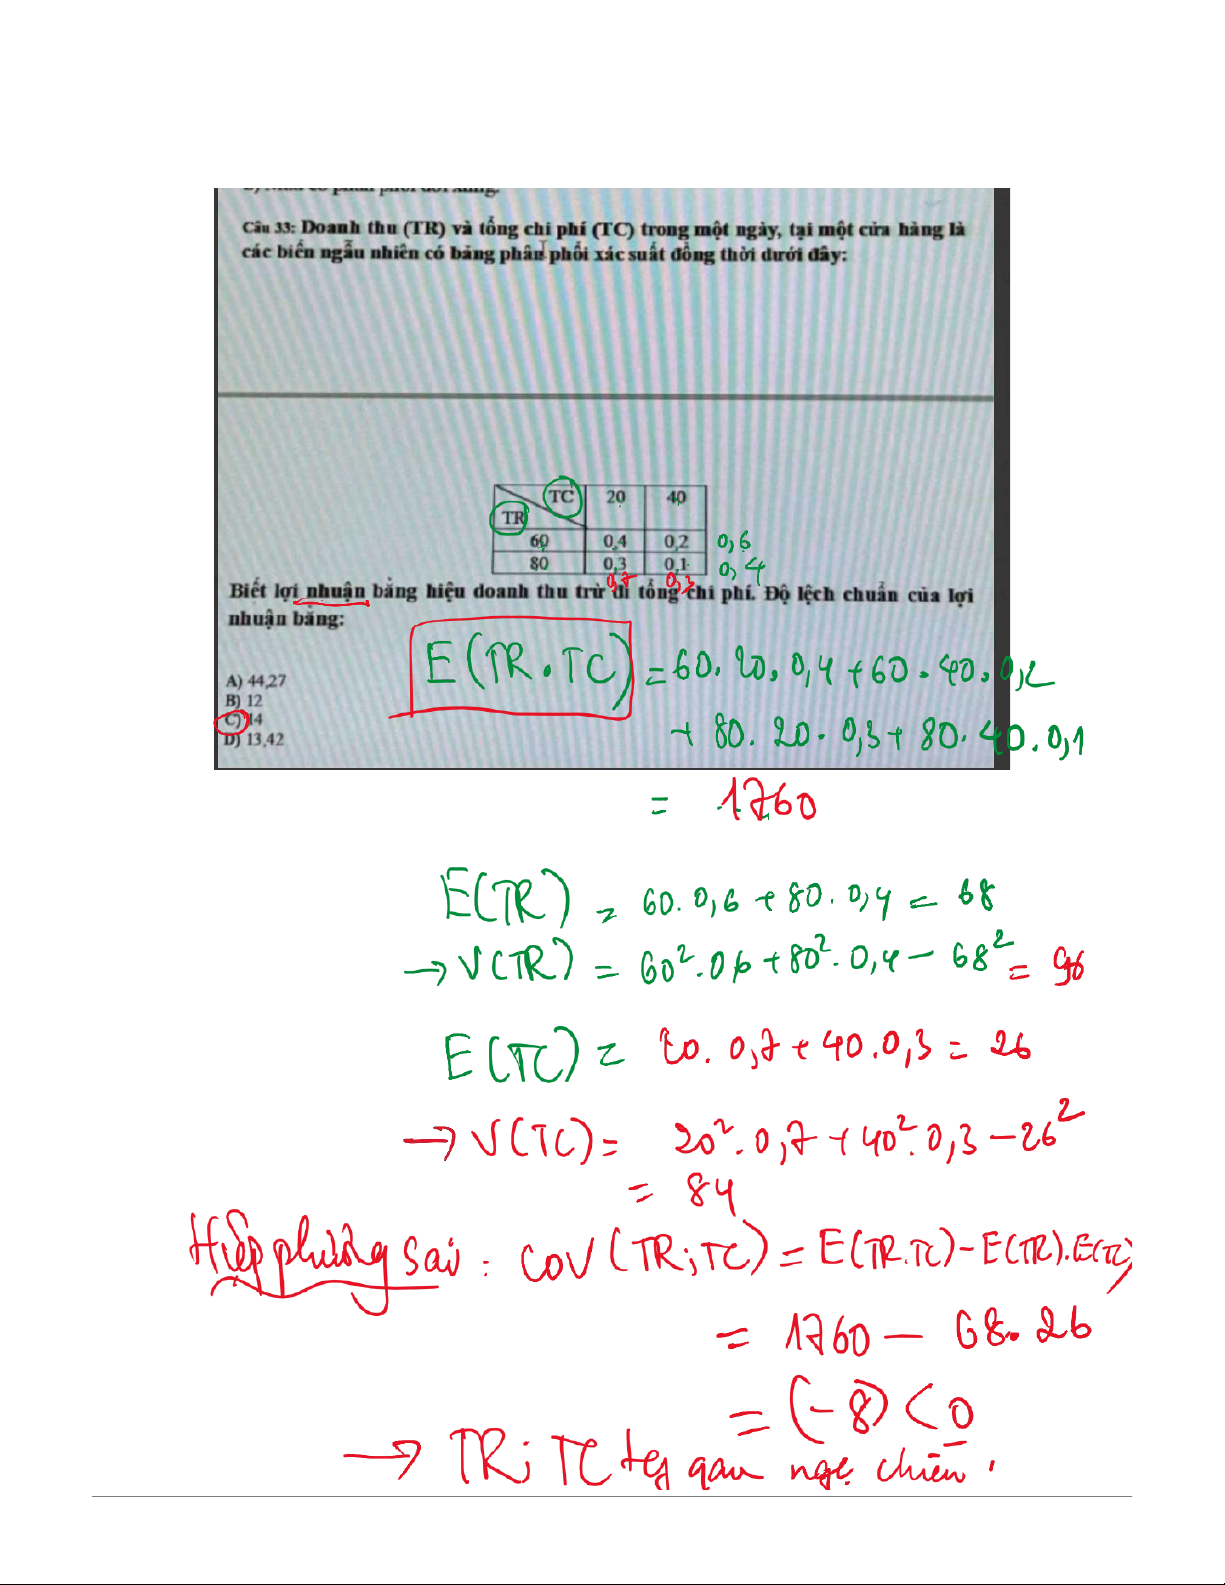 Câu 33: Doanh thu (TR) và tổng chi phí (TC) trong một ngày, tại một cửa hàng là
các biến ngẫu nhiên có bảng phân phối xác suất đồng thời dưới đây:
TC 20 40
TR
60 0,4 0,2 0,6
80 0,3 0,1 0,4
0,7 0,3
Biết lợi nhuận bằng hiệu doanh thu trừ đi tổng chi phí. Độ lệch chuẩn của lợi
nhuận bằng:
A) 44,27
B) 12
C) 14
D) 13,42
E(TR.TC) = 60.20.0,4 + 60.40.0,2
+ 80.20.0,3 + 80.40.0,1
= 1760
E(TR) = 60.0,6 + 80.0,4 = 68
→ V(TR) = 60².0,6 + 80².0,4 - 68² = 96
E(TC) = 20.0,7 + 40.0,3 = 26
→ V(TC) = 20².0,7 + 40².0,3 - 26²
= 84
Hiệp phương sai: COV(TR;TC) = E(TR.TC) - E(TR).E(TC)
= 1760 - 68.26
= (-8) < 0
→ TR; TC quan chiều